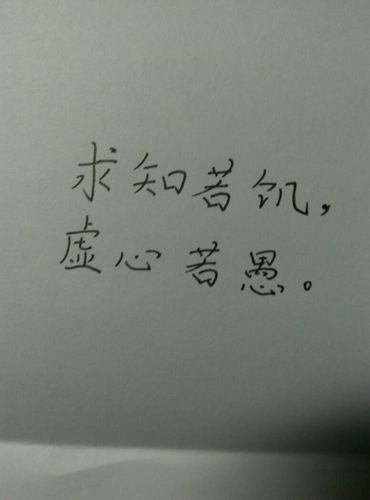 求知若饥,
虚心若愚。